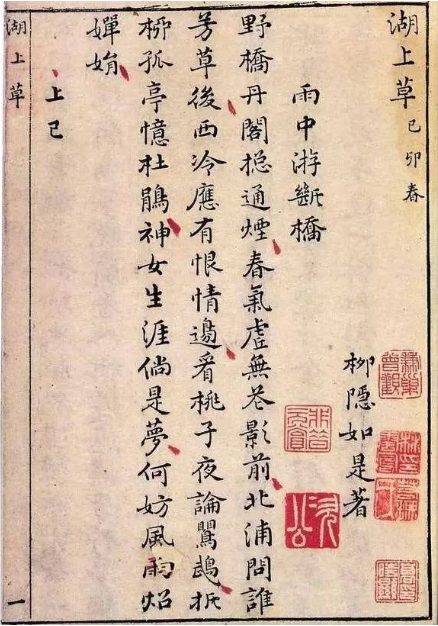 湖上草 己卯春
柳隱如是著
雨中游斷橋
野橋丹閣捴通煙春氣虛無花影前北浦問誰
芳草後西冷應有恨情邊看桃子夜論鸎鴂折
柳孤亭憶杜鵑神女生涯倘是夢何妨風雨炤
嬋娟
上巳
湖上草 一